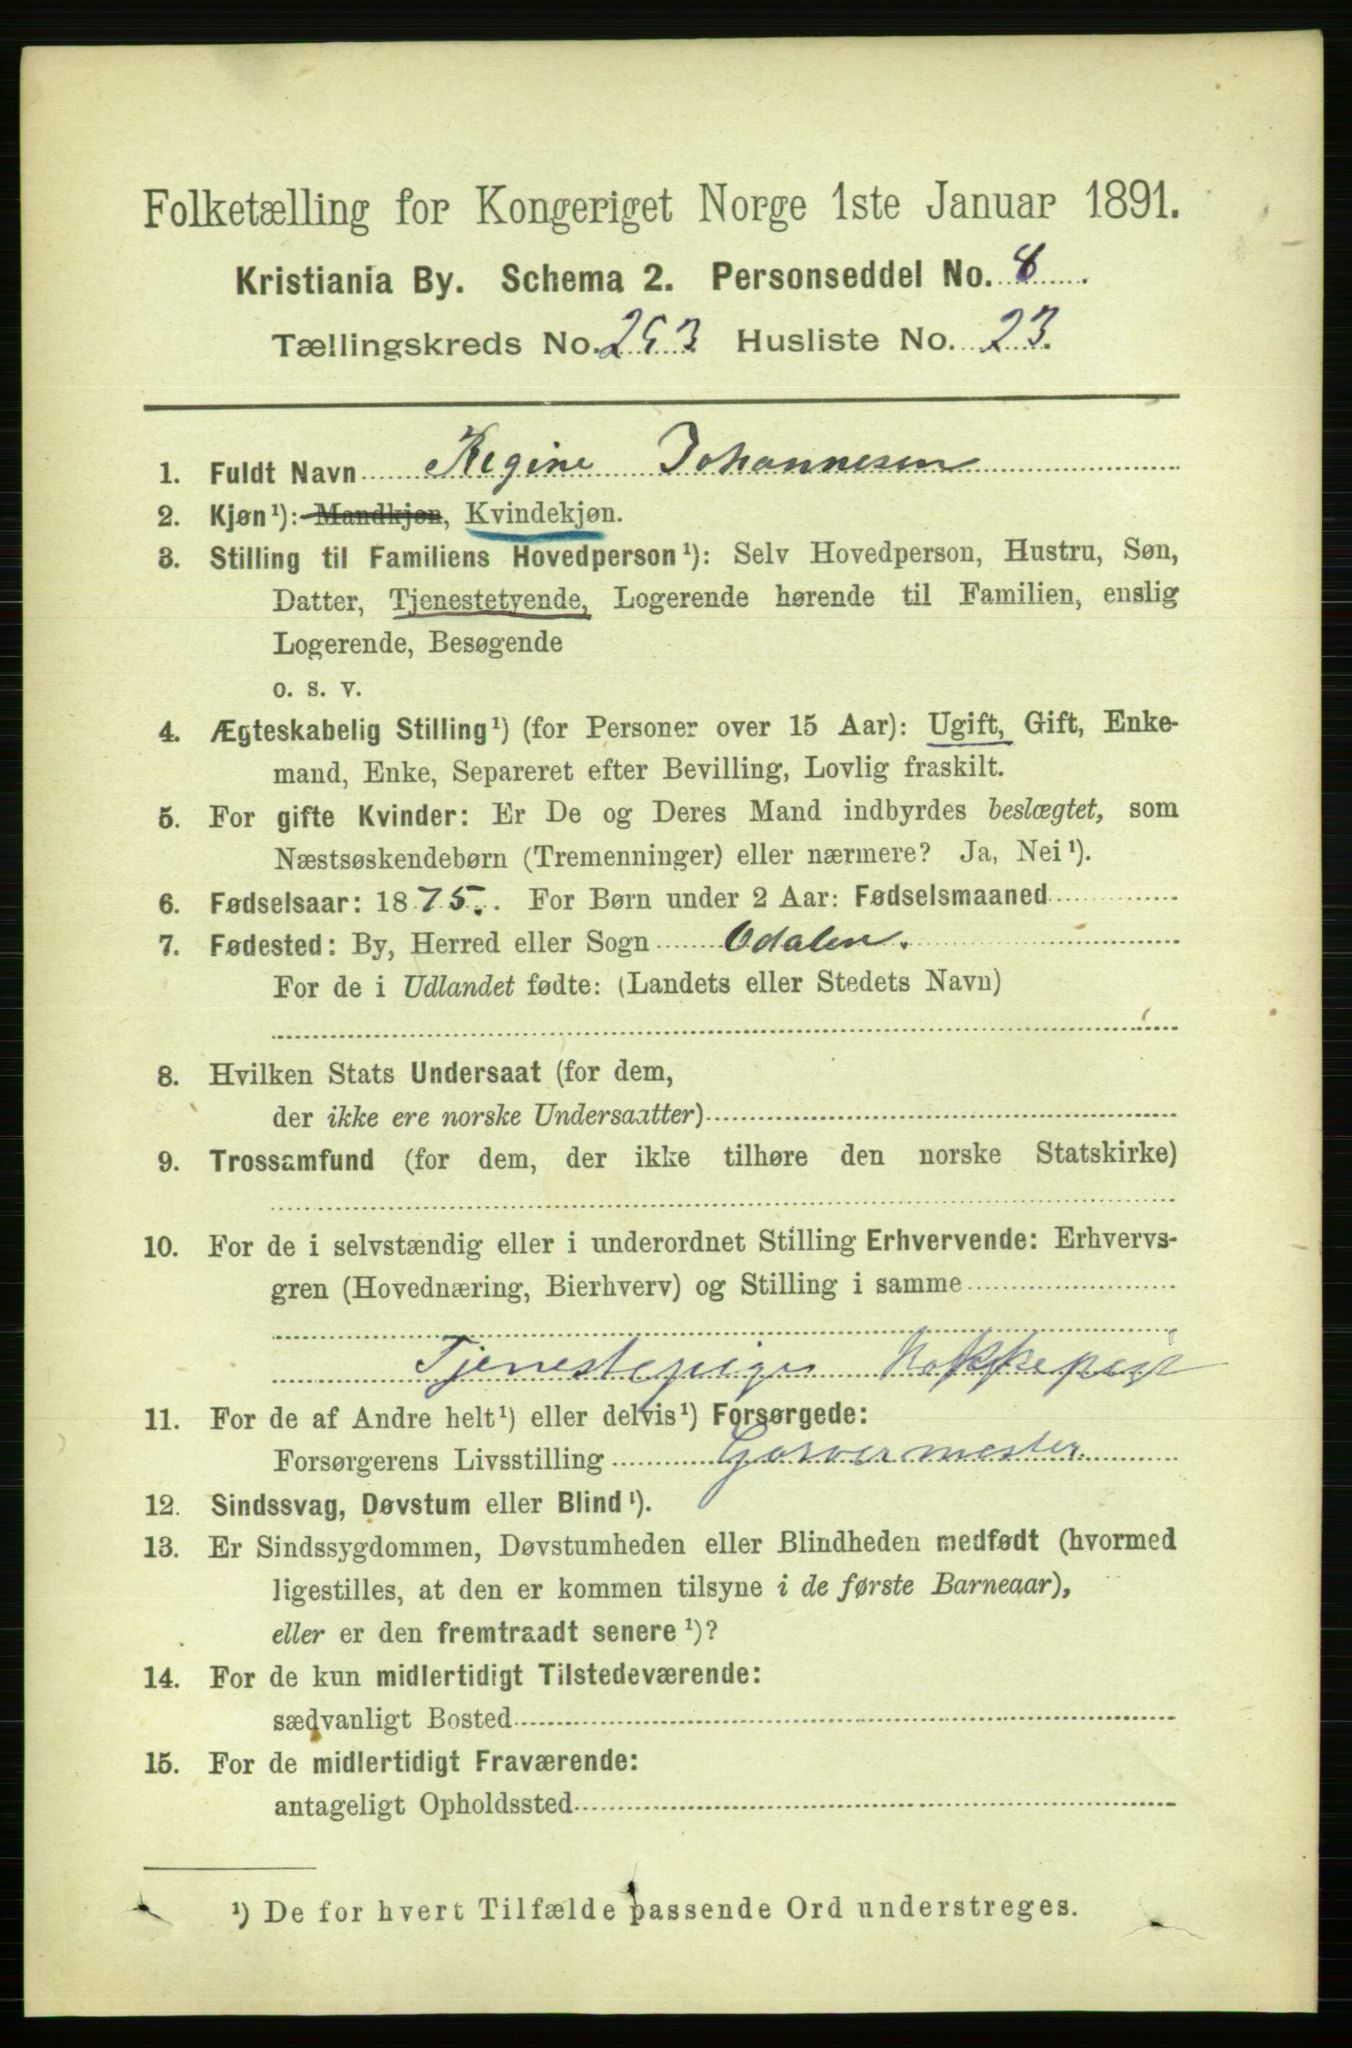 Folketælling for Kongeriget Norge 1ste Januar 1891.
Kristiania By. Schema 2. Personseddel No. 8.
Tællingskreds No. 253 Husliste No. 23.
1. Fuldt Navn Regine Johannesen
2. Kjøn¹): Mandkjøn, Kvindekjøn.
3. Stilling til Familiens Hovedperson¹): Selv Hovedperson, Hustru, Søn,
Datter, Tjenestetyende, Logerende hørende til Familien, enslig
Logerende, Besøgende
o. s. v.
4. Ægteskabelig Stilling¹) (for Personer over 15 Aar): Ugift, Gift, Enke-
mand, Enke, Separeret efter Bevilling, Lovlig fraskilt.
5. For gifte Kvinder: Er De og Deres Mand indbyrdes beslægtet, som
Næstsøskendebørn (Tremenninger) eller nærmere? Ja, Nei¹).
6. Fødselsaar: 1875. For Børn under 2 Aar: Fødselsmaaned
7. Fødested: By, Herred eller Sogn Odalen.
For de i Udlandet fødte: (Landets eller Stedets Navn)
8. Hvilken Stats Undersaat (for dem,
der ikke ere norske Undersaatter)
9. Trossamfund (for dem, der ikke tilhøre den norske Statskirke)
10. For de i selvstændig eller i underordnet Stilling Erhvervende: Erhvervs-
gren (Hovednæring, Bierhverv) og Stilling i samme
Tjenestepige Kokkepige
11. For de af Andre helt¹) eller delvis¹) Forsørgede:
Forsørgerens Livsstilling Garvermester
12. Sindssvag, Døvstum eller Blind¹).
13. Er Sindssygdommen, Døvstumheden eller Blindheden medfødt (hvormed
ligestilles, at den er kommen tilsyne i de første Barneaar),
eller er den fremtraadt senere¹)?
14. For de kun midlertidigt Tilstedeværende:
sædvanligt Bosted
15. For de midlertidigt Fraværende:
antageligt Opholdssted
¹) De for hvert Tilfælde passende Ord understreges.